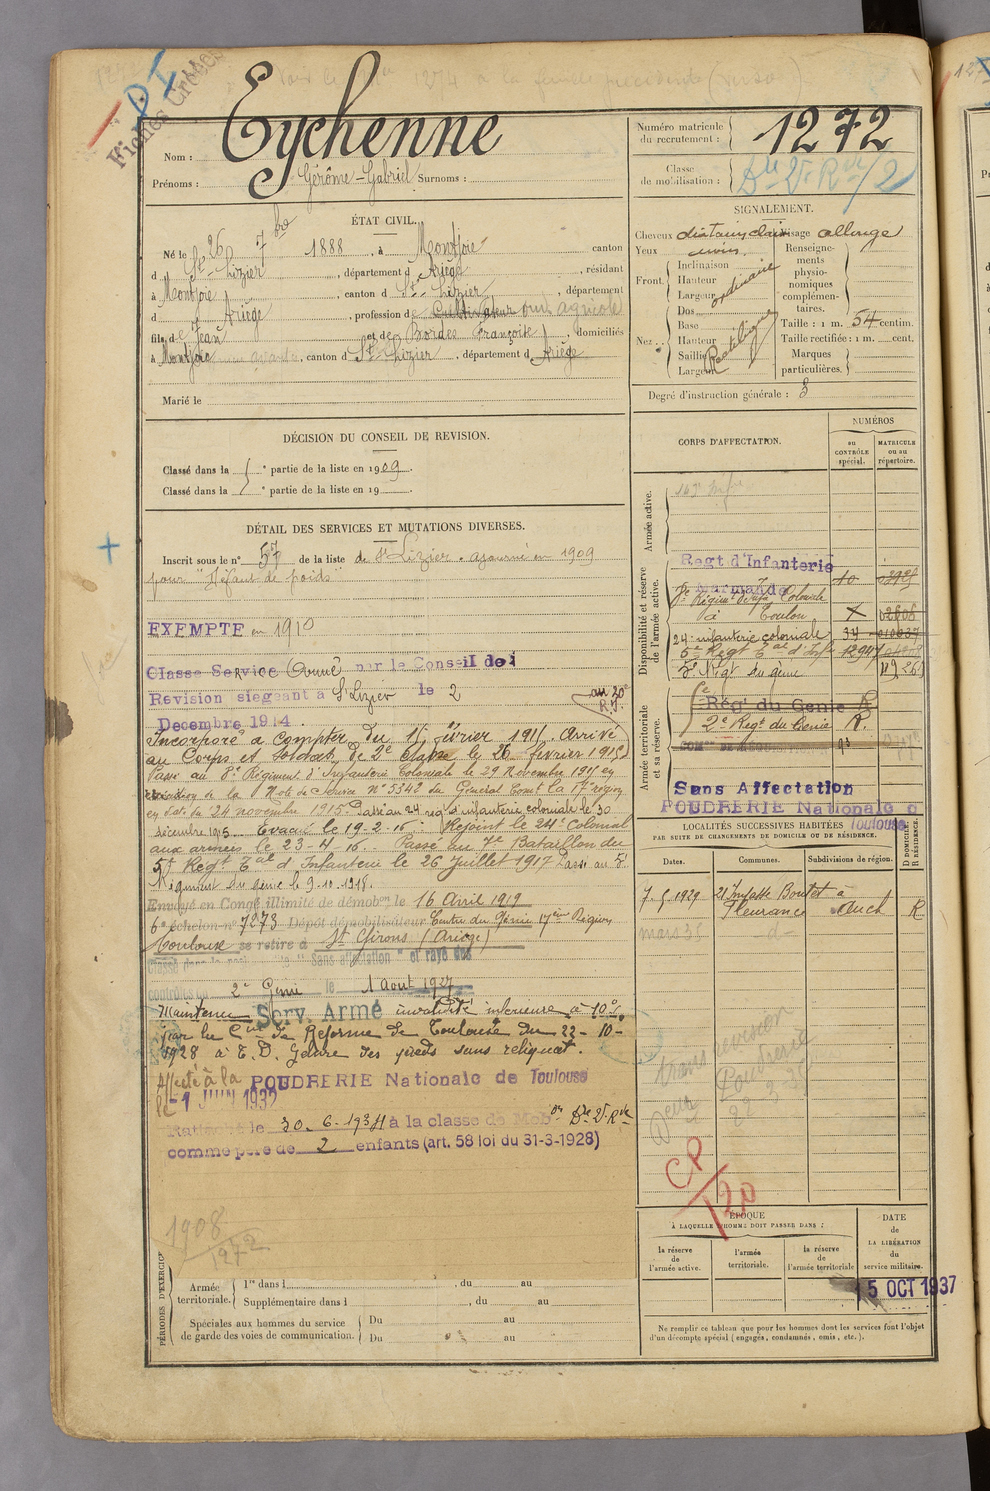 Fiches Croisées
Nom : Eychenne
Prénoms : Gérôme-Gabriel Surnoms :
Numéro matricule du recrutement : 1272
Classe de mobilisation :
ÉTAT CIVIL.
Né le 26 7bre 1888, à Montjoie canton
d St-Lizier, département d Ariège, résidant
à Montjoie, canton d St-Lizier, département
d Ariège, profession de Cultivateur ouv. agricole
fils de Jean et de Bordes Françoise, domiciliés
à Montjoie, canton d St-Lizier, département d Ariège
Marié le
SIGNALEMENT.
Cheveux chatain clair Visage allongé
Yeux
Front. Inclinaison
Hauteur
Largeur
ordinaire
Nez. Dos
Base
Hauteur
Saillie
Largeur
Rectiligne
Renseignements physionomiques complémentaires.
Taille : 1 m. 54 centim.
Taille rectifiée : 1 m. cent.
Marques particulières.
Degré d'instruction générale : 3
DÉCISION DU CONSEIL DE REVISION.
Classé dans la e partie de la liste en 1909.
Classé dans la e partie de la liste en 19
DÉTAIL DES SERVICES ET MUTATIONS DIVERSES.
Inscrit sous le n° 57 de la liste de St Lizier. ajourné en 1909
pour "Défaut de poids"
EXEMPTÉ en 1910
Classé Service Armé par le Conseil de
Revision siégeant à St Lizier le 2
Décembre 1914.
Incorporé à compter du février 1915. Arrivé
au Corps et soldat de 2e classe le 26 février 1915
Passé au 8e Régiment d'Infanterie Coloniale le 29 Novembre 1915 en
exécution de la Note de Service N° 5342 du Général Comt la 17e région
en date du 24 novembre 1915. Passé au 24 rég d'infanterie coloniale le 30
décembre 1915. Evacué le 19-2-16. Rejoint le 24e Colonial
aux armées le 23-4-16. Passé au 7e Bataillon du
5e Régt Tal d'Infanterie le 26 Juillet 1917 Passé au 5e
Régiment du génie le 9.10.1918.
Envoyé en Congé illimité de démobon le 16 Avril 1919
6e échelon n° 7073 Dépôt démobilisateur Centre du Génie 17ème Région
Toulouse se retire à St Girons (Ariège)
Classé dans la "Sans affectation" et rayé des
contrôles du 2e Génie le 1 Aout 1927
Maintenu Serv. Armé invalidité inférieure à 10%
par la Con de Réforme de Toulouse du 22-10-
1928 à T. D. Gelure des pieds sans reliquat.
Affecté à la POUDRERIE Nationale de Toulouse
le 1 JUIN 1932
Rattaché le 30-6-1934 à la classe de Mobon
comme père de 2 enfants (art. 58 loi du 31-3-1928)
1908
1272
CORPS D'AFFECTATION.
NUMÉROS
au CONTRÔLE spécial.
MATRICULE ou au répertoire.
Armée active.
Disponibilité et réserve de l'armée active.
Regt d'Infanterie
Marmande
8e Régiment d'Infie Coloniale
à Toulon
24 infanterie coloniale
5e Régt Tal d'Infie
5e Régt du génie
Armée territoriale et sa réserve.
Rég' du Génie
2e Regt du Génie R.
Sans Affectation
POUDRERIE Nationale
Toulouse
LOCALITÉS SUCCESSIVES HABITÉES
PAR SUITE DE CHANGEMENTS DE DOMICILE OU DE RÉSIDENCE.
Dates.
Communes.
Subdivisions de région.
D DOMICILE R RÉSIDENCE.
7.5.1929 21 Impasse Boutet à
Fleurance Auch R
mars 35 -d-
Poudrerie
22 3 35
CP
120
ÉPOQUE
À LAQUELLE L'HOMME DOIT PASSER DANS :
la réserve de l'armée active.
l'armée territoriale.
la réserve de l'armée territoriale
DATE de LA LIBÉRATION du service militaire.
5 OCT 1937
Ne remplir ce tableau que pour les hommes dont les services font l'objet
d'un décompte spécial (engagés, condamnés, omis, etc.).
PÉRIODES D'EXERCICE
Armée territoriale. 1re dans l , du au
Supplémentaire dans l , du au
Spéciales aux hommes du service de garde des voies de communication. Du au
Du au